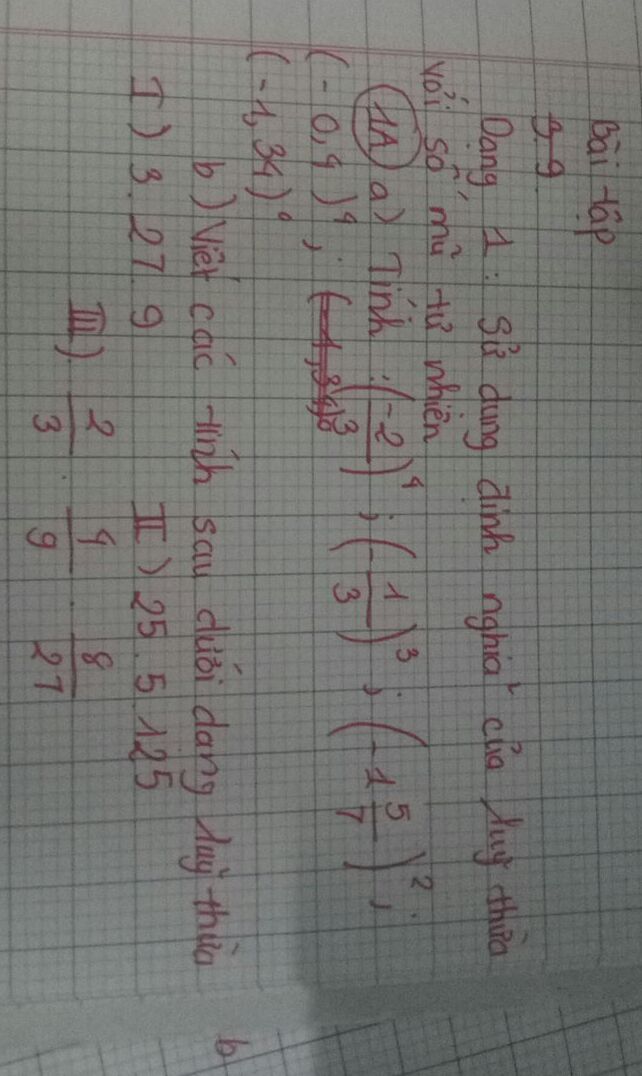 Bài tập
9-9
Dạng 1: Sử dụng định nghĩa của luỹ thừa
với số mũ tự nhiên
1A a) Tính: (-2/3)⁴; (-1/3)³; (-1 5/7)²;
(-0,4)⁴;
(-1,34)⁰
b) Viết các tính sau dưới dạng luỹ thừa
I) 3.27.9 II) 25.5.125
III) 2/3 . 4/9 . 8/27
b